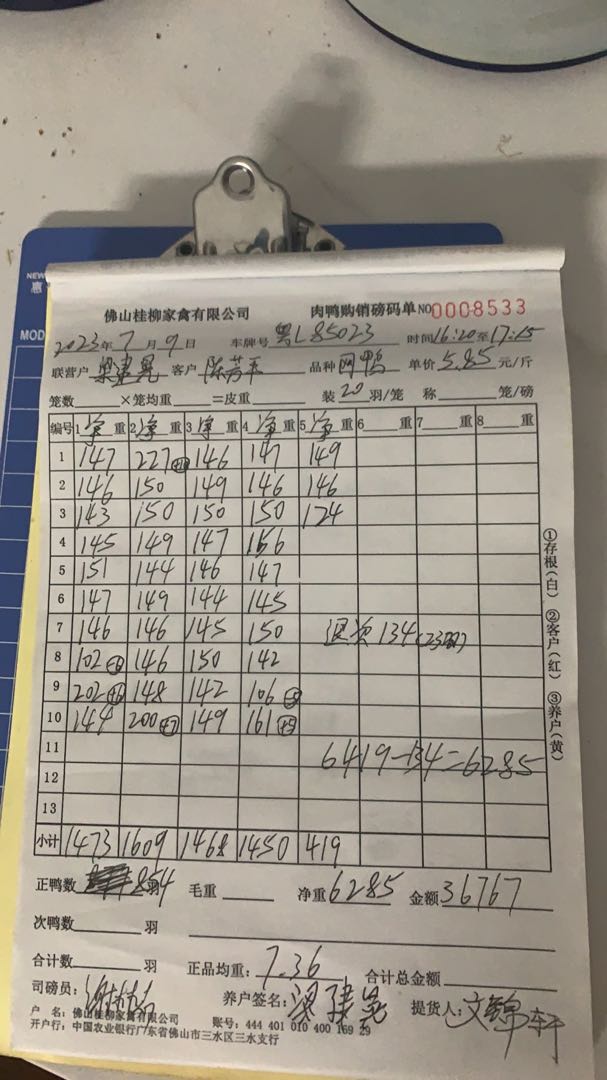 佛山桂柳家禽有限公司 肉鸭购销磅码单 NO 0008533
2023年7月9日 车牌号 粤L85023 时间16:20至17:15
联营户 梁建晃 客户 陈芳平 品种 网鸭 单价 5.85 元/斤
笼数 ×笼均重 =皮重 装 20 羽/笼 称 笼/磅
编号 1 净 重 2 净 重 3 净 重 4 净 重 5 净 重 6 重 7 重 8 重
1 147 227 146 147 149
2 146 150 149 146 146
3 143 150 150 150 124
4 145 149 147 156
5 151 144 146 147
6 147 149 144 145
7 146 146 145 150 退次134(23羽)
8 102 146 150 142
9 202 148 142 106
10 144 200 +7 149 161 +3
11 6419-134=6285
12
13
小计 1473 1609 1468 1450 419
正鸭数 854 羽 毛重 净重 6285 金额 36767
次鸭数 羽
合计数 羽 正品均重: 7.36 合计总金额
司磅员: 养户签名: 梁建晃 提货人: 文锦轩
户 名: 佛山桂柳家禽有限公司 账号: 444 401 010 400 169 29
开户行: 中国农业银行广东省佛山市三水区三水支行
①存根(白) ②客户(红) ③养户(黄)
NEW
惠
MOD